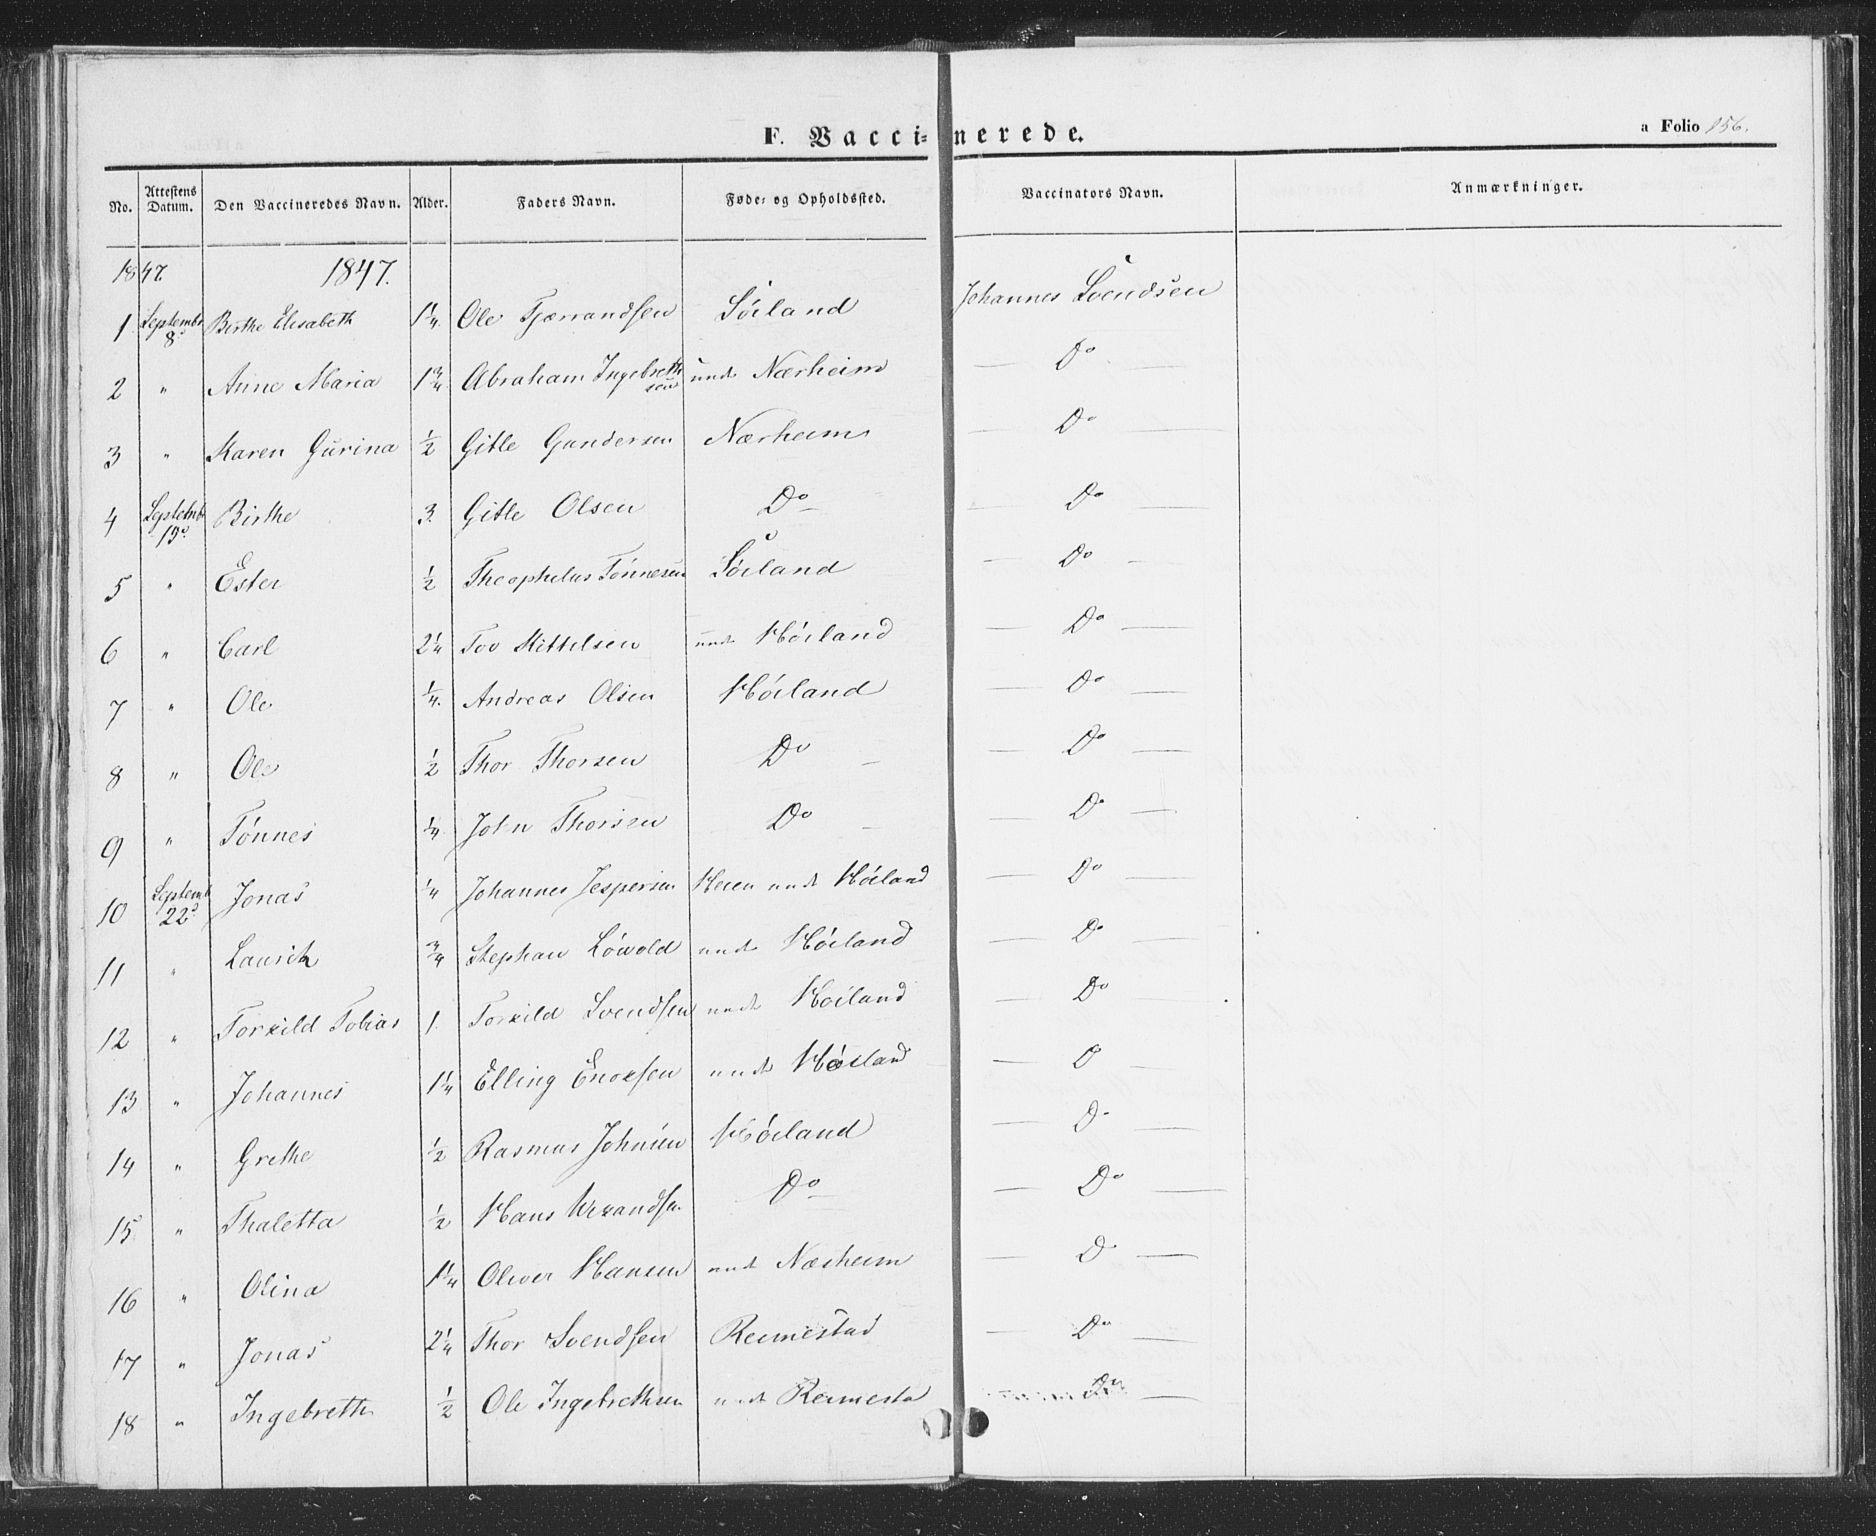 F. Vaccinerede.
a Folio 156.
No. Attestens Datum. Den Vaccineredes Navn. Alder. Faders Navn. Føde- og Opholdssted. Vaccinators Navn. Anmærkninger.
1847. 1847.
1 Septembr 8d Birthe Elisabeth 1 1/4 Ole Tjærandsen Sörland Johannes Svendsen
2 " Anne Maria 1 3/4 Abraham Ingebrethsen und Nærheim Do
3 " Karen Gurina 1/2 Gitle Gundersen Nærheim Do
4 Septemb 15d Birthe 3. Gitle Olsen Do Do
5 " Ester 1/2 Theophelus Tönnesen Sörland Do
6 " Carl 2 1/4 Tov Kittelsen und Höiland Do
7 " Ole 1/4. Andreas Olsen Höiland Do
8 " Ole 1/2 Thor Thorsen Do Do
9 " Tönnes 1/4. John Thorsen Do Do
10 Septemb 22d Jonas 1/4 Johannes Jespersen Heien und Höiland Do
11 " Lauritz 3/4 Stephan Lövold und Höiland Do
12 " Torkild Tobias 1. Torkild Svendsen und Höiland Do
13 " Johannes 1 1/4 Elling Enoksen und Höiland D
14 " Grethe 1/2 Rasmus Johnsen Höiland Do
15 " Thaletta 1/2 Hans Do Do
16 " Olina 1 1/4 Oliver Hansen und Nærheim Do
17 " Jonas 2 1/4 Thor Svendsen Reimestad Do
18 " Ingebreth 1/2 Ole Ingebrethsen und Reimesta Do